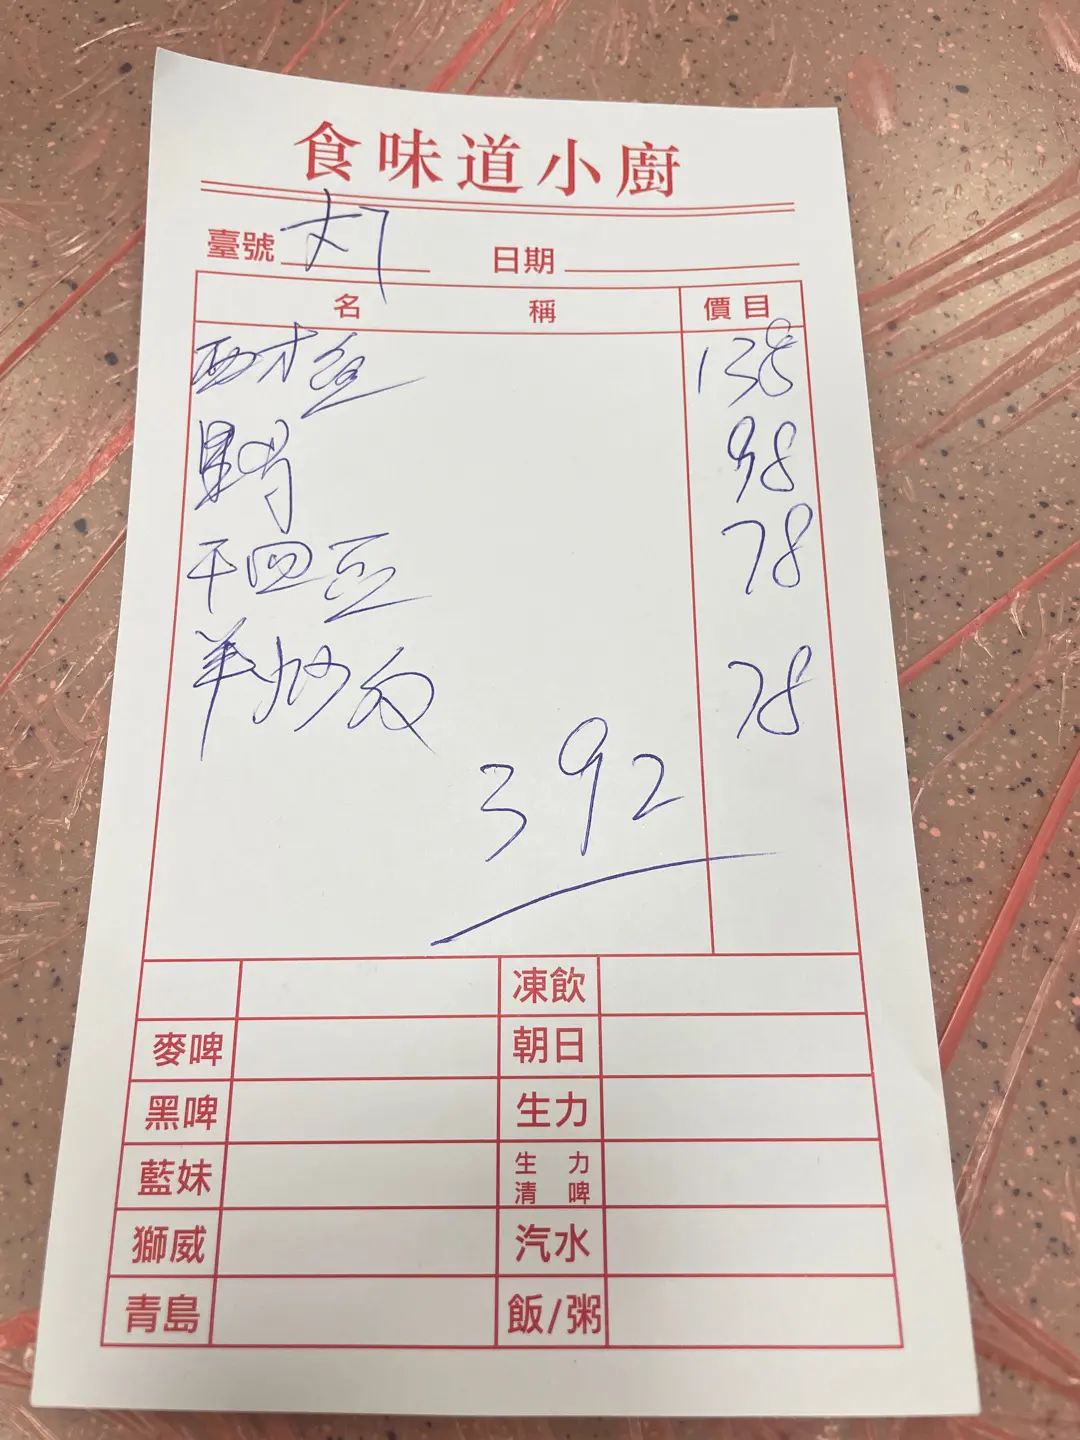 食味道小廚
臺號 日期
名稱 價目
138
98
干四豆 78
羊炒 78
392
凍飲
麥啤 朝日
黑啤 生力
藍妹 生力清啤
獅威 汽水
青島 飯/粥